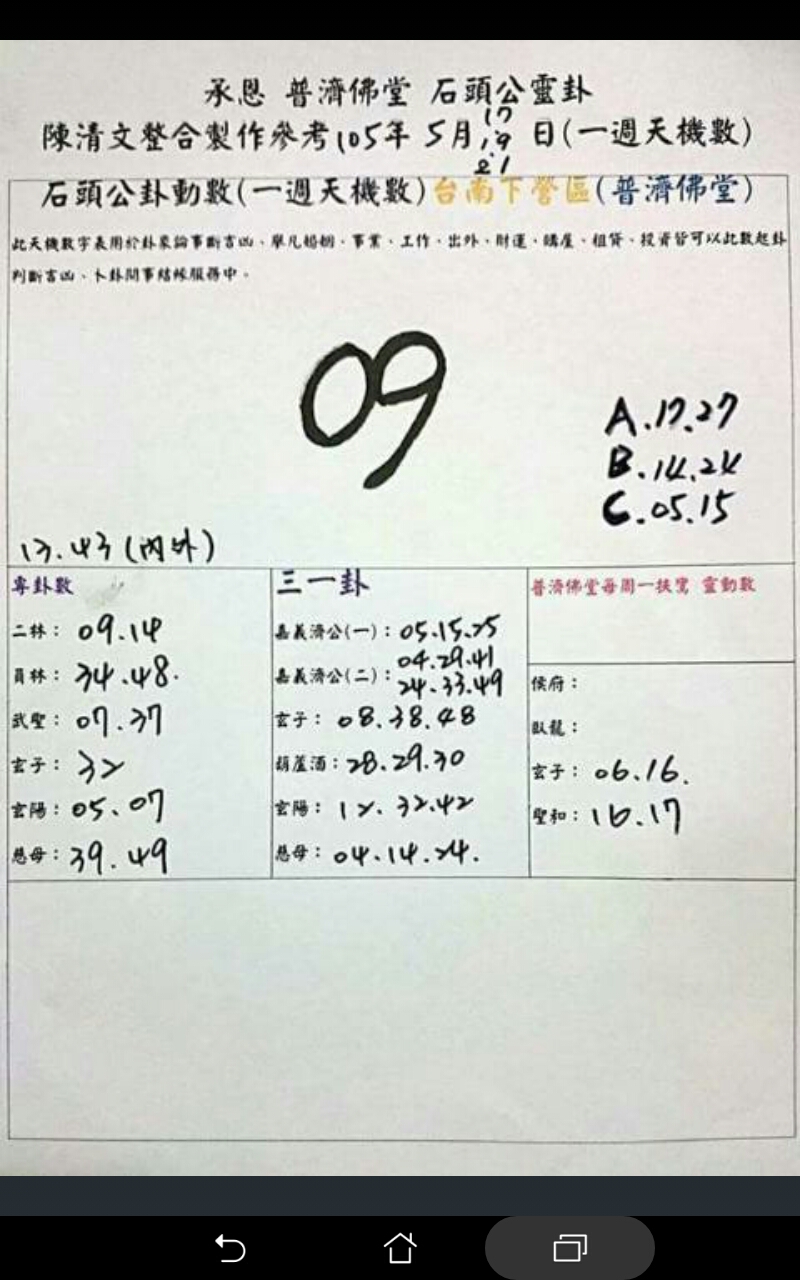 承恩 普濟佛堂 石頭公靈卦
17
陳清文整合製作參考105年 5月19日(一週天機數)
21
石頭公卦動數(一週天機數)台南下營區(普濟佛堂)
此天機數字表用於卦象論事斷吉凶、舉凡婚姻、事業、工作、出外、財運、購屋、租貸、投資皆可以此數起卦
判斷吉凶、卜卦問事結緣服務中。
09
A.17.27
B.14.24
C.05.15
13.43(內外)
專卦數
二林: 09.14
員林: 34.48.
武聖: 07.37
玄子: 32
玄陽: 05.07
慈母: 39.49
三一卦
嘉義濟公(一): 05.15.25
嘉義濟公(二): 04.29.41
24.33.49
玄子: 08.38.48
葫蘆酒: 28.29.30
玄陽: 12.32.42
慈母: 04.14.24.
普濟佛堂每周一扶鸞 靈動數
侯府:
臥龍:
玄子: 06.16.
聖和: 16.17